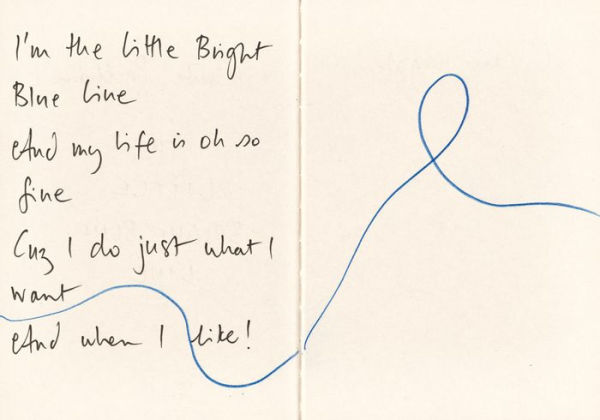 I'm the little Bright
Blue line
And my life is oh so
fine
Cuz I do just what I
want
And when I like!